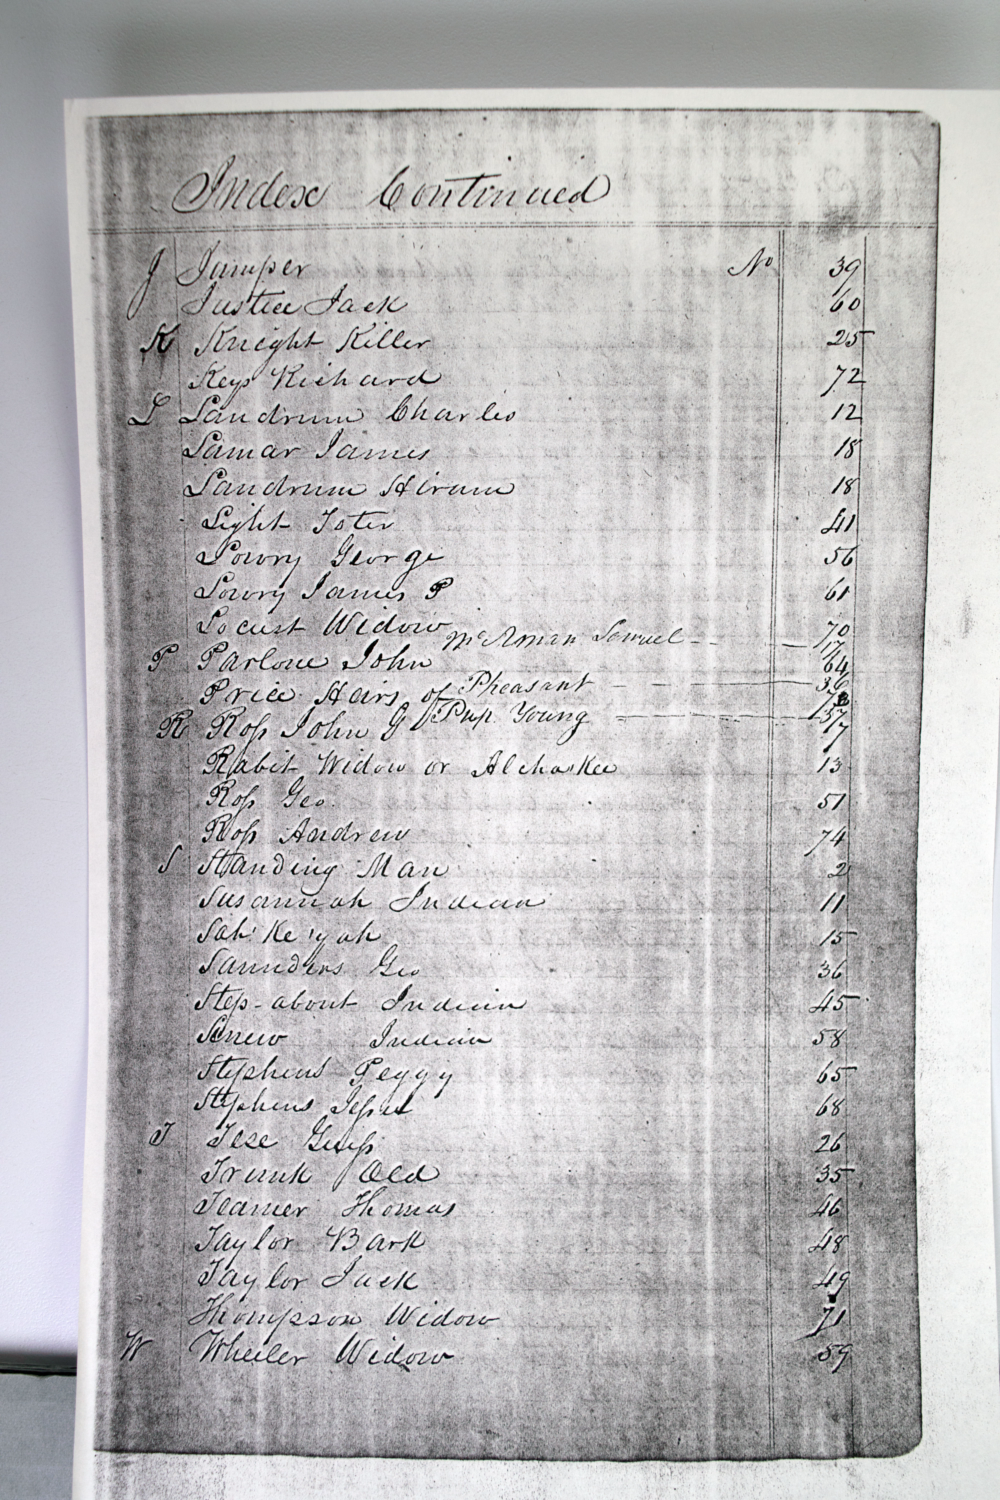 Index Continued
J Jumper No 39
Justice Jack 60
K Knight Killer 25
Keys Richard 72
L Landrum Charles 12
Lamar James 18
Landrum Hiram 18
Light Toter 41
Lowry George 56
Lowry James P 61
Locust Widow 70
McAman Samuel 17
P Parlone John 64
Price Hairs of
Pheasant 36
R Ross John G
Pup Young 57
Rabit Widow or Alchaskee 13
Ross Geo. 51
Ross Andrew 74
S Standing Man 2
Susannah Indian 11
Sah'Ke'yah 15
Saunders Geo 36
Step-about Indian 45
Indian 58
Stephens Peggy 65
Stephens Jesse 68
T Guess 26
Trunk Old 35
Teamer Thomas 46
Taylor Bark 48
Taylor Jack 49
Thompson Widow 71
W Wheeler Widow 59